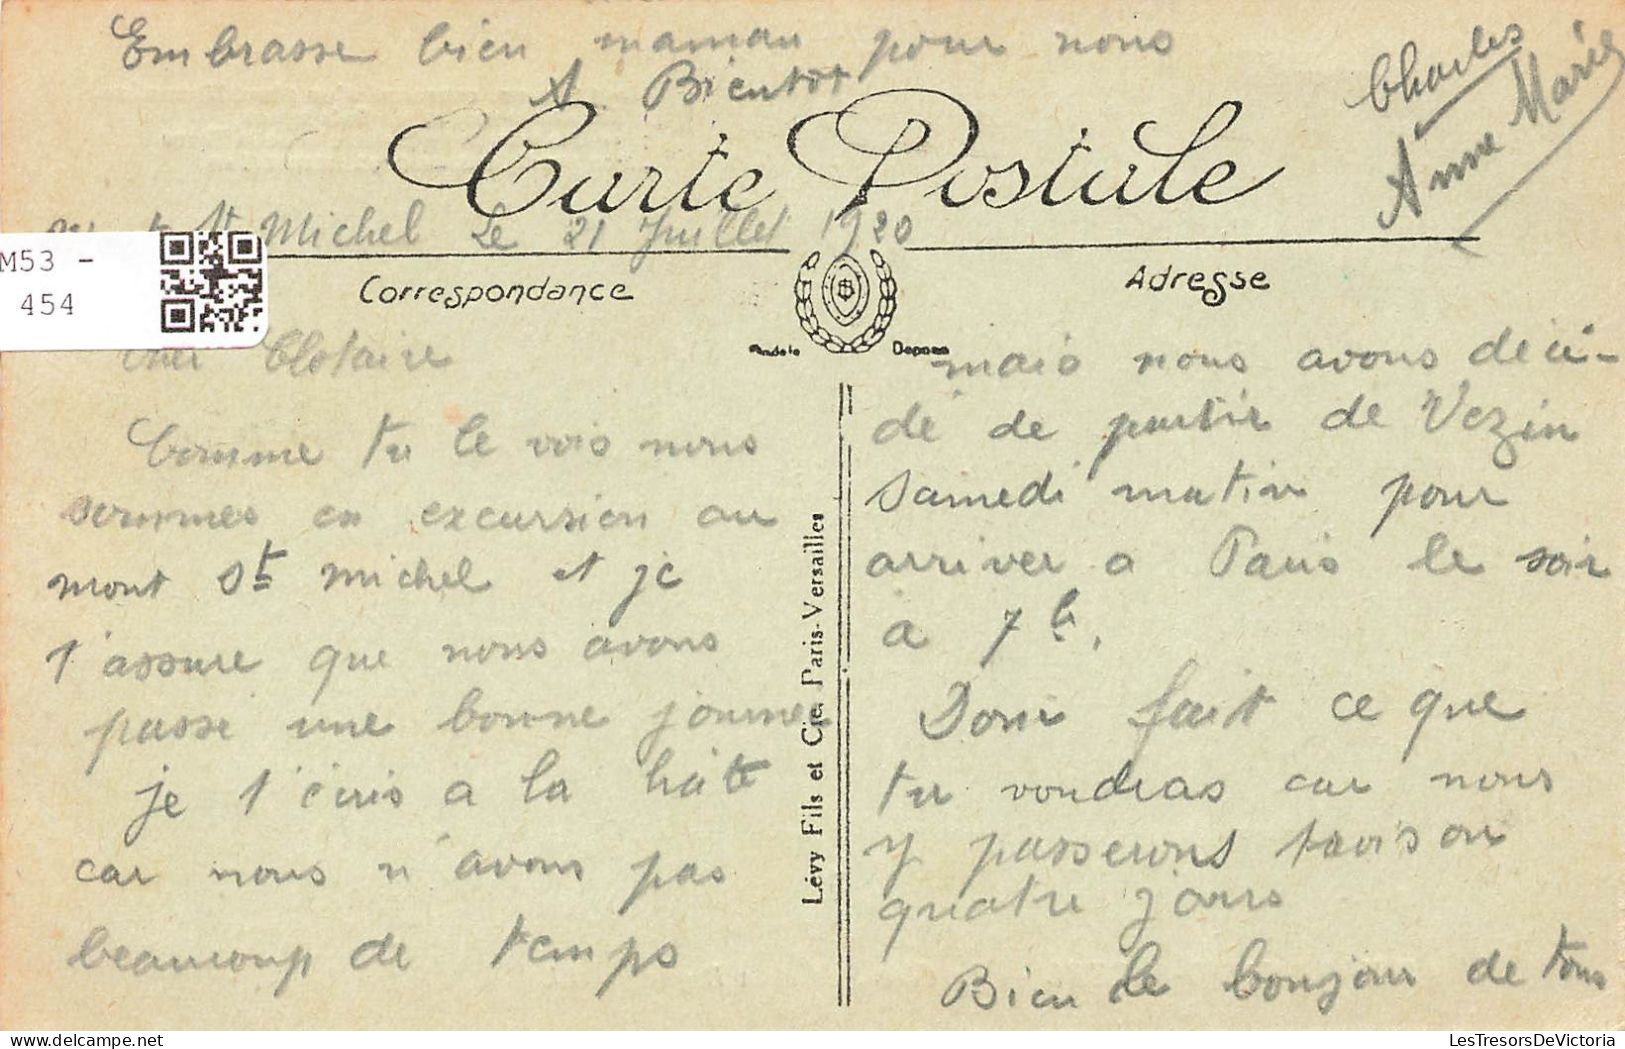 Embrasse bien maman pour nous
A Bientot
Charles
Anne Marie
Carte Postale
St Michel Le 21 Juillet 1920
M53 -
454
Correspondance
Adresse
Modele Depose
cher Clotaire
Comme tu le vois nous
sommes en excursion au
mont St michel et je
t'assure que nous avons
passé une bonne journee
je t'écris a la hâte
car nous n'avons pas
beaucoup de temps
Lévy Fils et Cie, Paris-Versailles
mais nous avons deci-
dé de partir de Vezin
samedi matin pour
arriver a Paris le soir
a 7 h.
Donc fait ce que
tu voudras car nous
y passerons trois ou
quatre jours
Bien le bonjour de tous
LesTresorsDeVictoria